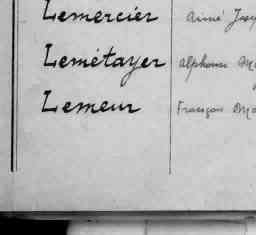 Lemercier Aimé
Lemétayer Alphonse
Lemeur François